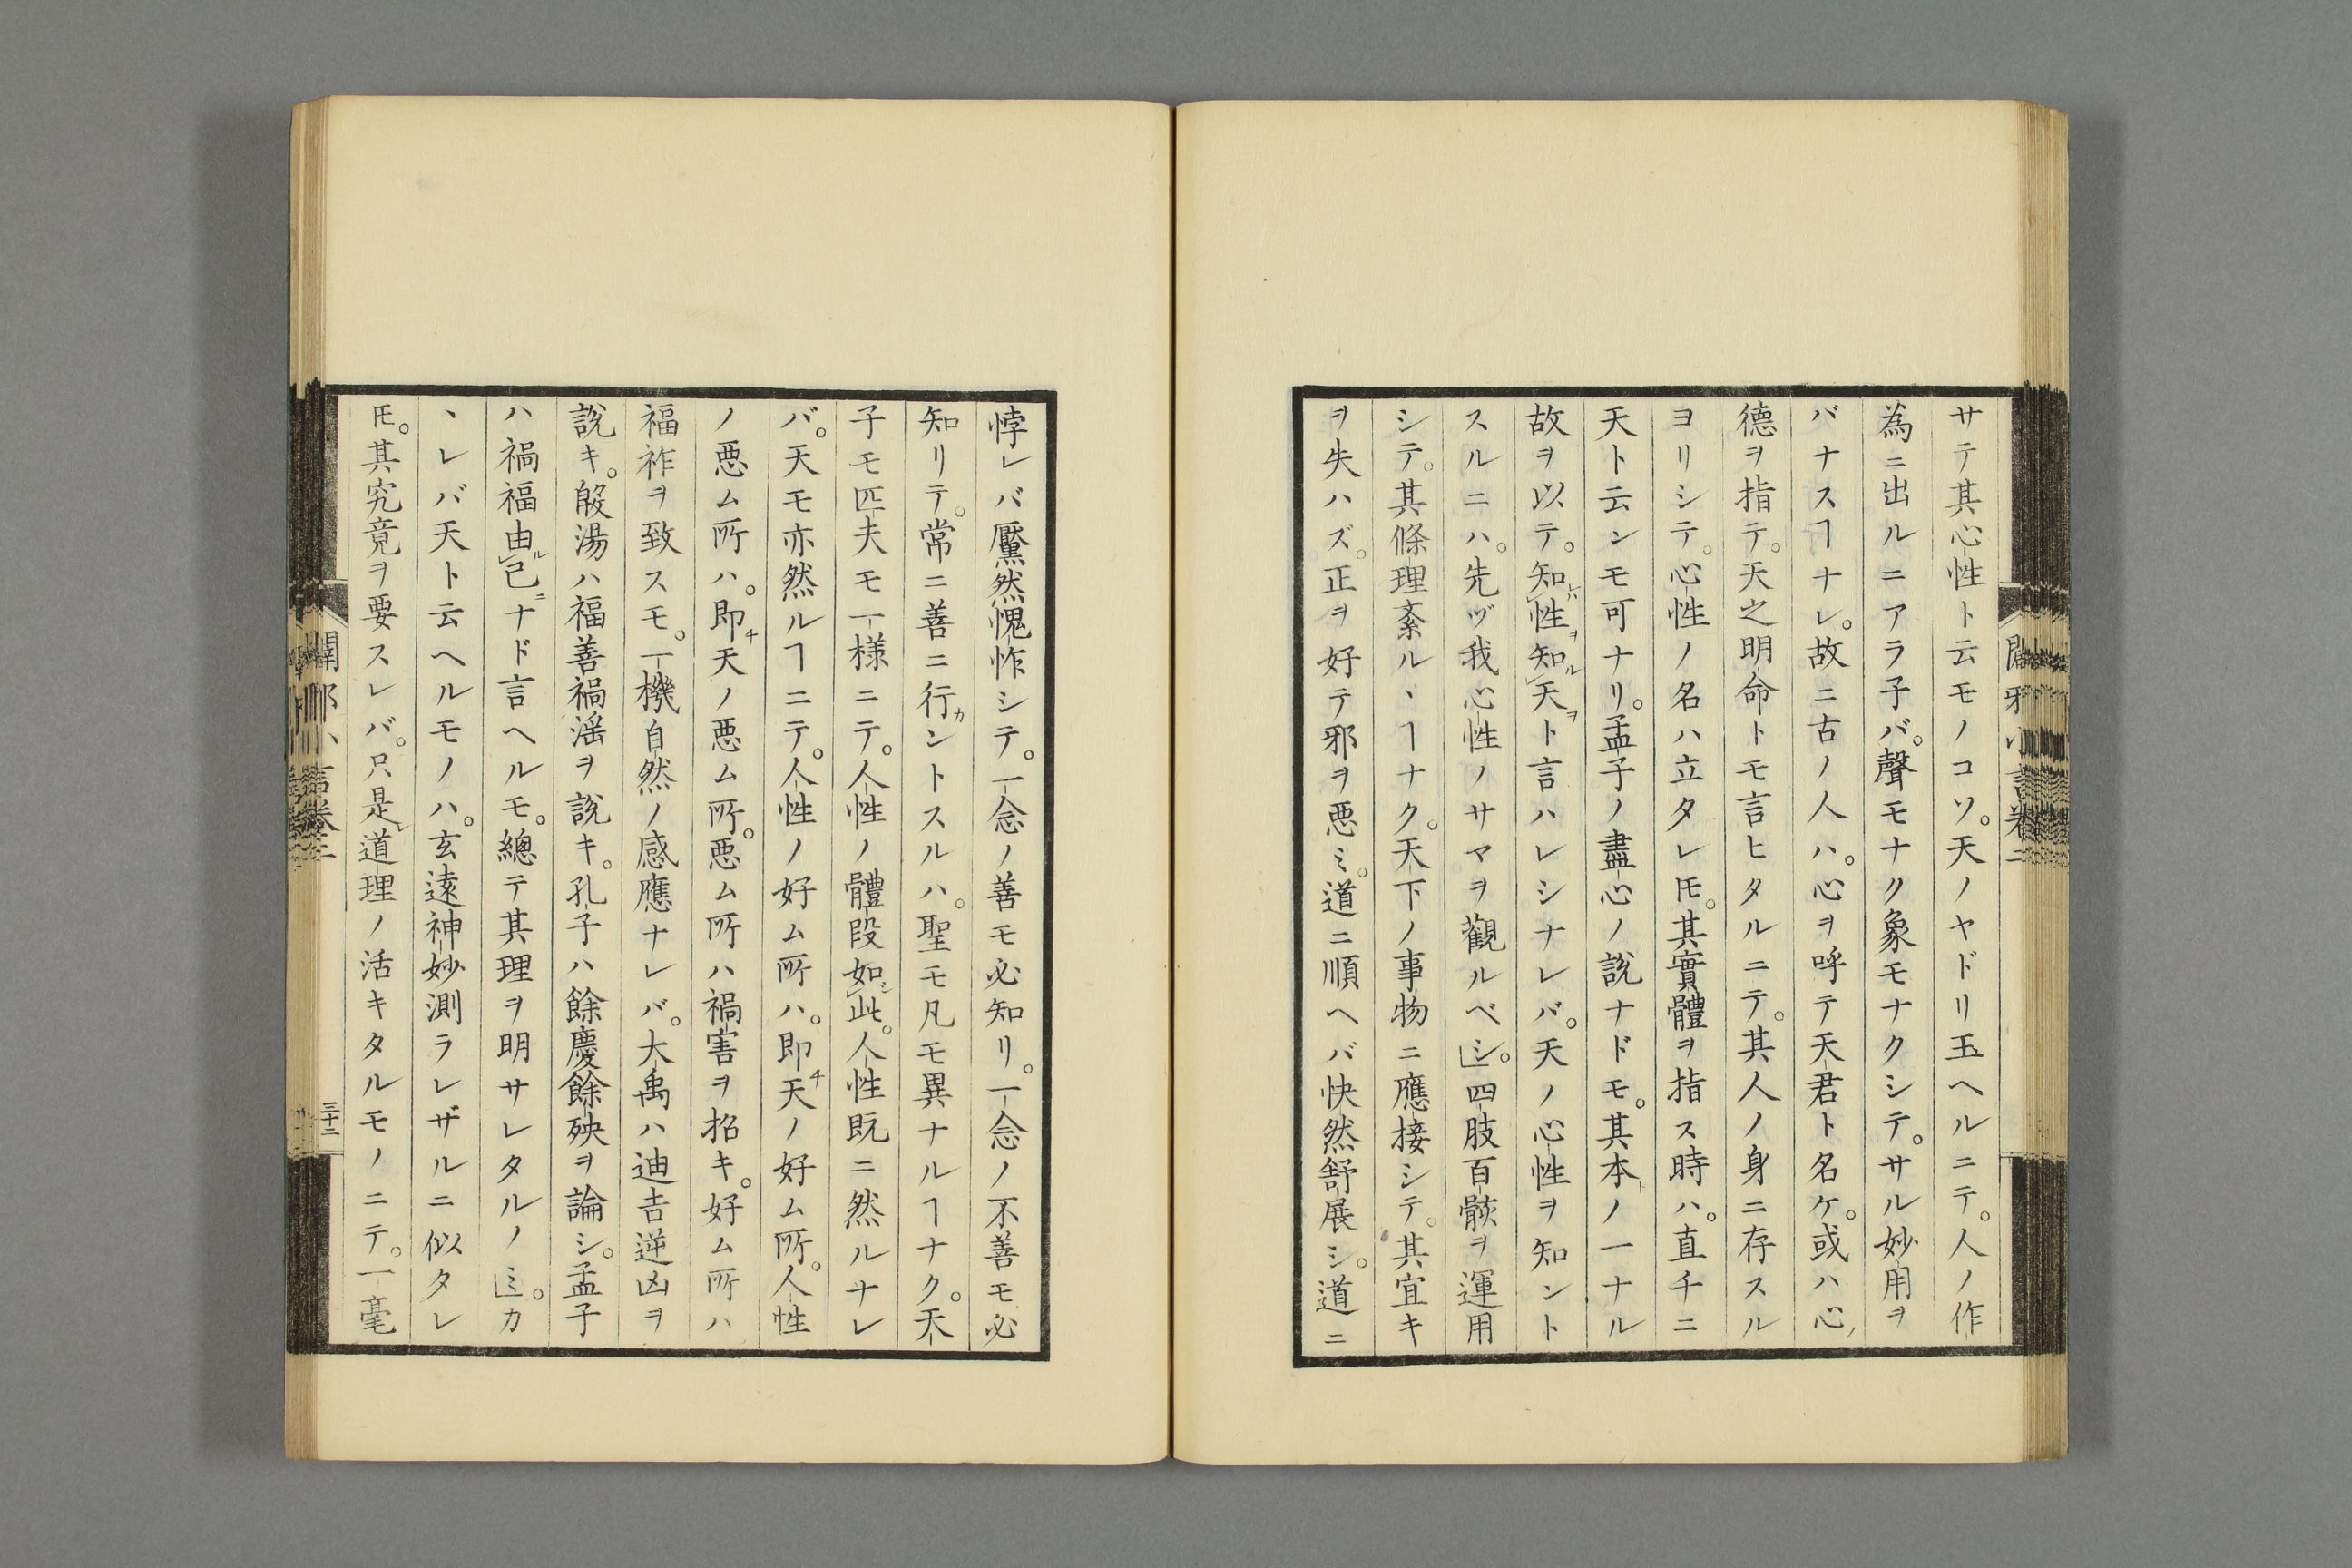 サテ其心性ト云モノコソ。天ノヤドリ玉ヘルニテ。人ノ作
為ニ出ルニアラ子バ。聲モナク象モナクシテ。サル妙用ヲ
バナスヿナレ。故ニ古ノ人ハ。心ヲ呼テ天君ト名ケ。或ハ心
德ヲ指テ。天之明命トモ言ヒタルニテ。其人ノ身ニ存スル
ヨリシテ。心性ノ名ハ立タレ𪜈。其實體ヲ指ス時ハ。直チニ
天ト云ンモ可ナリ。孟子ノ盡心ノ說ナドモ。其本ノ一ナル
故ヲ以テ。知レハ性ヲ知ル天ヲト言ハレシナレバ。天ノ心性ヲ知ント
スルニハ。先ヅ我心性ノサマヲ觀ルベシ」。四肢百骸ヲ運用
シテ。其條理紊ルヽヿナク。天下ノ事物ニ應接シテ。其宜キ
ヲ失ハズ。正ヲ好テ邪ヲ悪ミ。道ニ順ヘバ快然舒展シ。道ニ
闢邪小言卷二
悖レバ黶然愧怍シテ。一念ノ善モ必知リ。一念ノ不善モ必
知リテ。常ニ善ニ行カントスルハ。聖モ凡モ異ナルヿナク。天
子モ匹夫モ一様ニテ。人性ノ體段如シ此。人性既ニ然ルナレ
バ。天モ亦然ルヿニテ。人性ノ好ム所ハ。即チ天ノ好ム所。人性
ノ悪ム所ハ。即チ天ノ悪ム所。悪ム所ハ禍害ヲ招キ。好ム所ハ
福祚ヲ致スモ。一機自然ノ感應ナレバ。大禹ハ迪吉逆凶ヲ
說キ。殷湯ハ福善禍淫ヲ說キ。孔子ハ餘慶餘殃ヲ論シ。孟子
ハ禍福由ル己ニナド言ヘルモ。總テ其理ヲ明サレタルノミ」。カ
ヽレバ天ト云ヘルモノハ。玄遠神妙測ラレザルニ似タレ
𪜈。其究竟ヲ要スレバ。只是レ道理ノ活キタルモノニテ。一毫
闢邪小言卷二
三十二